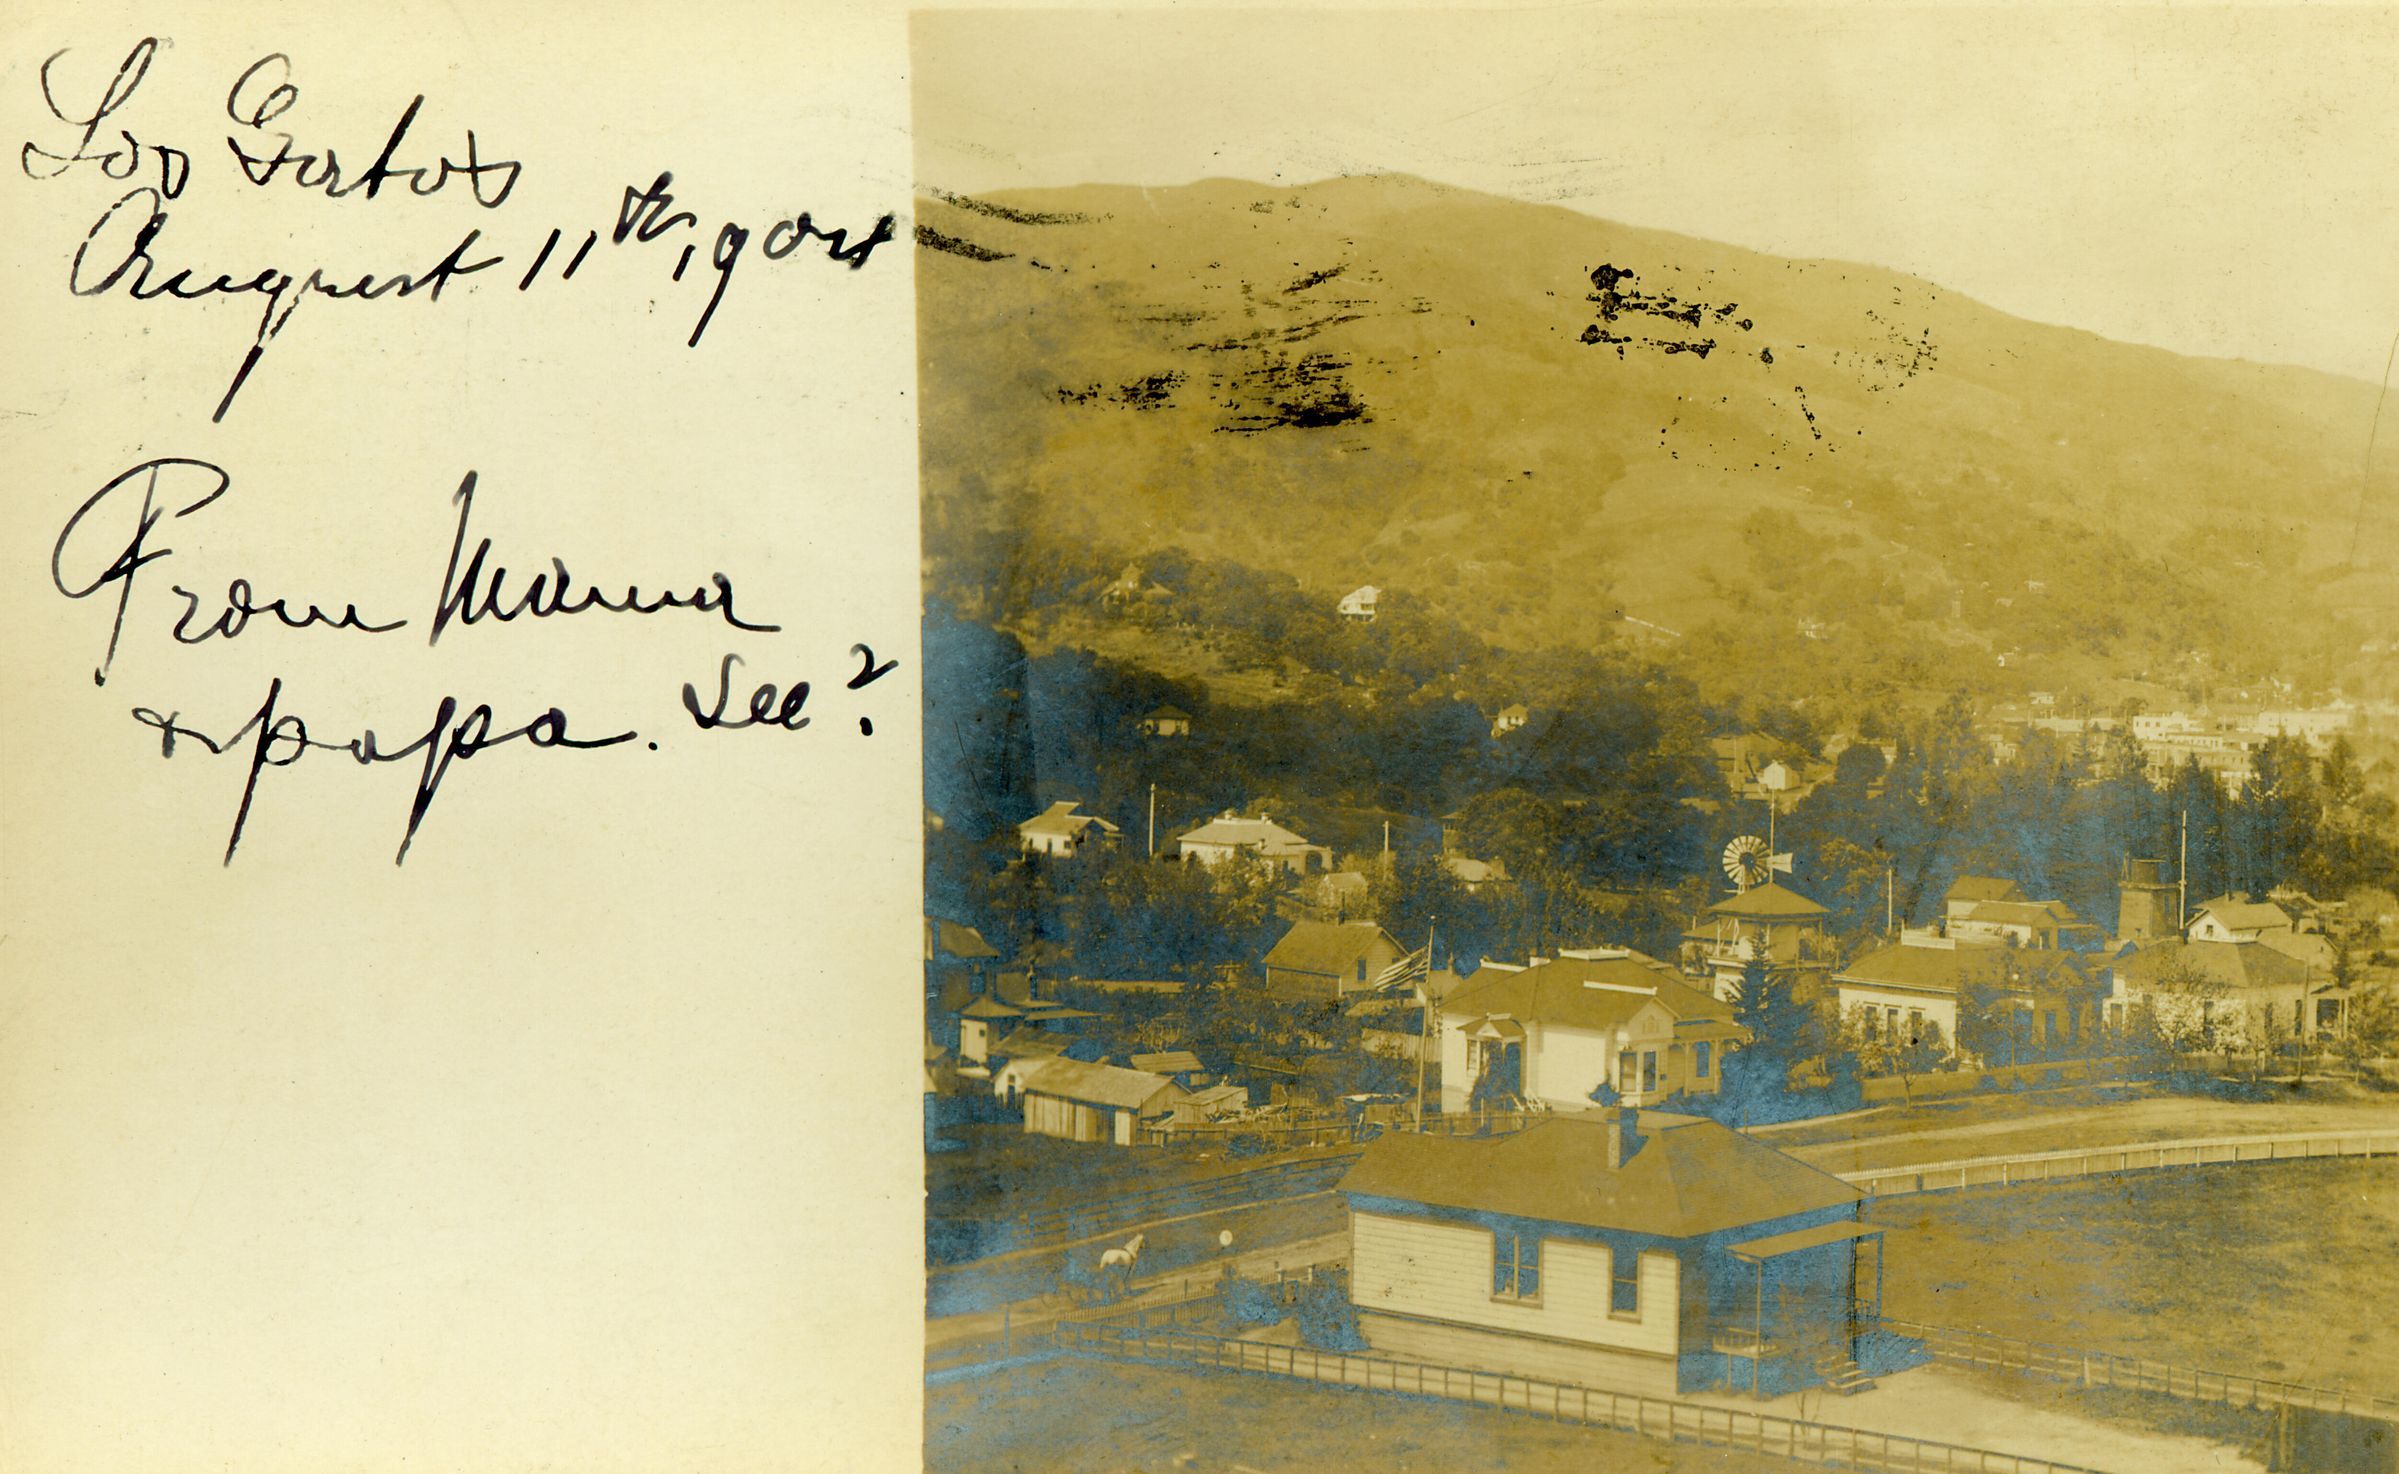 Los Gatos
August 11th, 1904
From Mama
& papa. See?